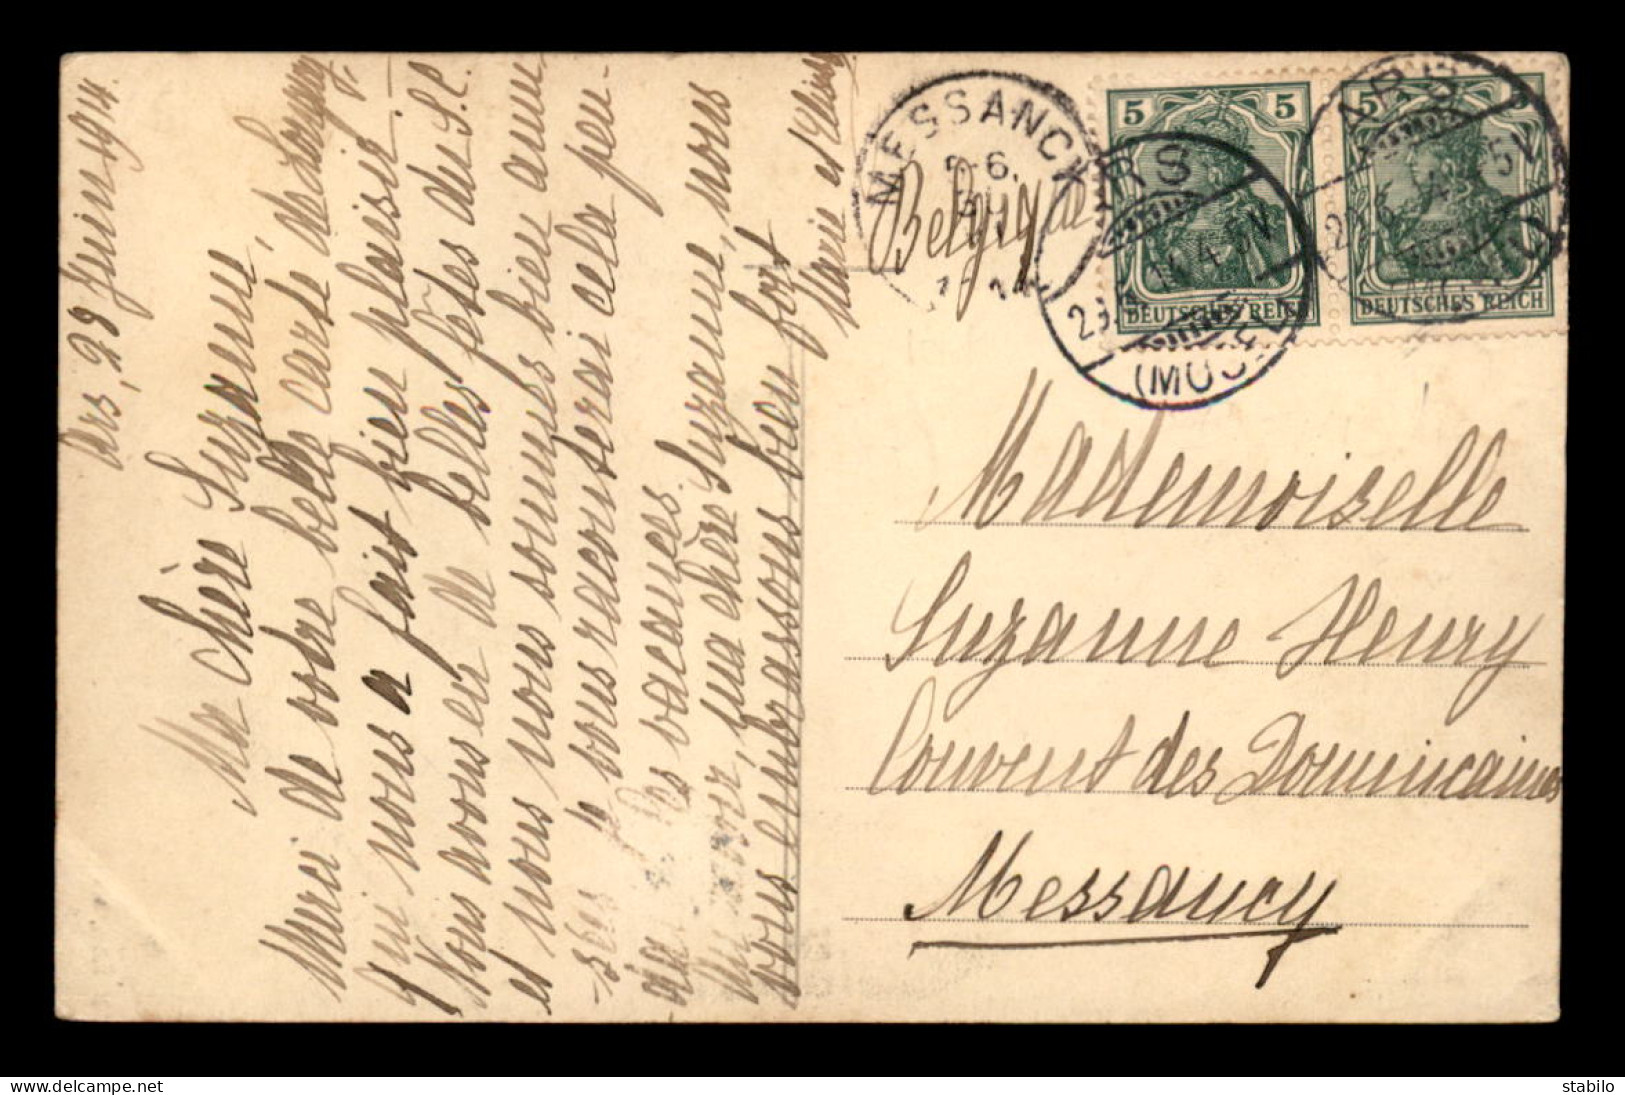 Ars, 29 Juin 1914.
Ma chère Suzanne,
Merci de votre belle carte de Longwy
qui nous a fait bien plaisir.
Nous avons eu de belles fêtes du S.C
et nous nous sommes bien amu
sées. Je vous raconterai cela pen-
dant les vacances.
Au revoir, ma chère Suzanne, nous
vous embrassons bien fort
Marie et
MESSANCK
Belgique
5 5
DEUTSCHES REICH
5
DEUTSCHES REICH
ARS
(MOSEL)
ARS
Mademoiselle
Suzanne Henry
Couvent des Dominicaines
Messancy
delcampe.net
stabilo